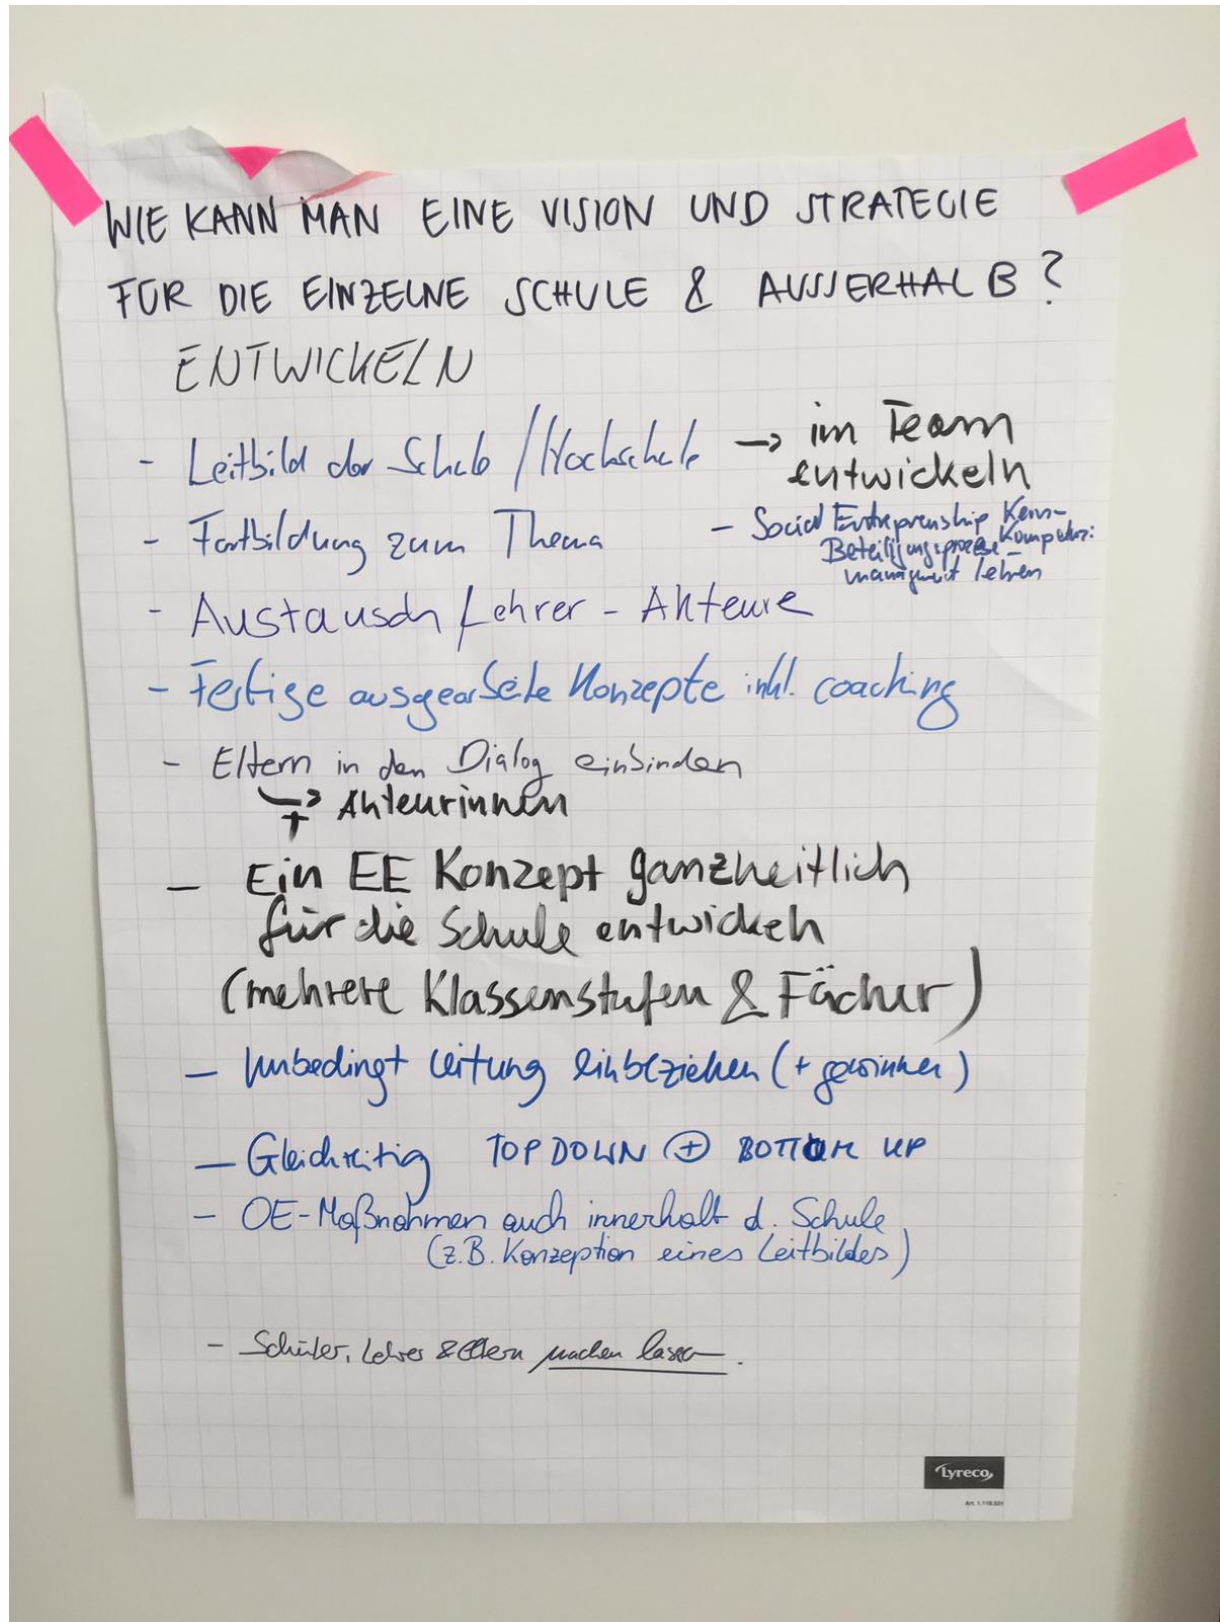 WIE KANN MAN EINE VISION UND STRATEGIE
FÜR DIE EINZELNE SCHULE & AUSSERHALB?
ENTWICKELN
- Leitbild der Schule / Hochschule → im Team
entwickeln
- Fortbildung zum Thema
- Social Entreprenship Kern-
Beteiligungsprozess- Kompetenz:
managment lehren
- Austausch Lehrer - Akteure
- Fertige ausgearbeitete Konzepte inkl. coaching
- Eltern in den Dialog einbinden
+ → Akteurinnen
- Ein EE Konzept ganzheitlich
für die Schule entwickeln
(mehrere Klassenstufen & Fächer)
- Unbedingt Leitung einbeziehen (+ gewinnen)
- Gleichzeitig TOP DOWN ⊕ BOTTOM UP
- OE-Maßnahmen auch innerhalb d. Schule
(z.B. Konzeption eines Leitbildes)
- Schüler, Lehrer & Eltern machen lassen.
Lyreco
Art. 1.118.331